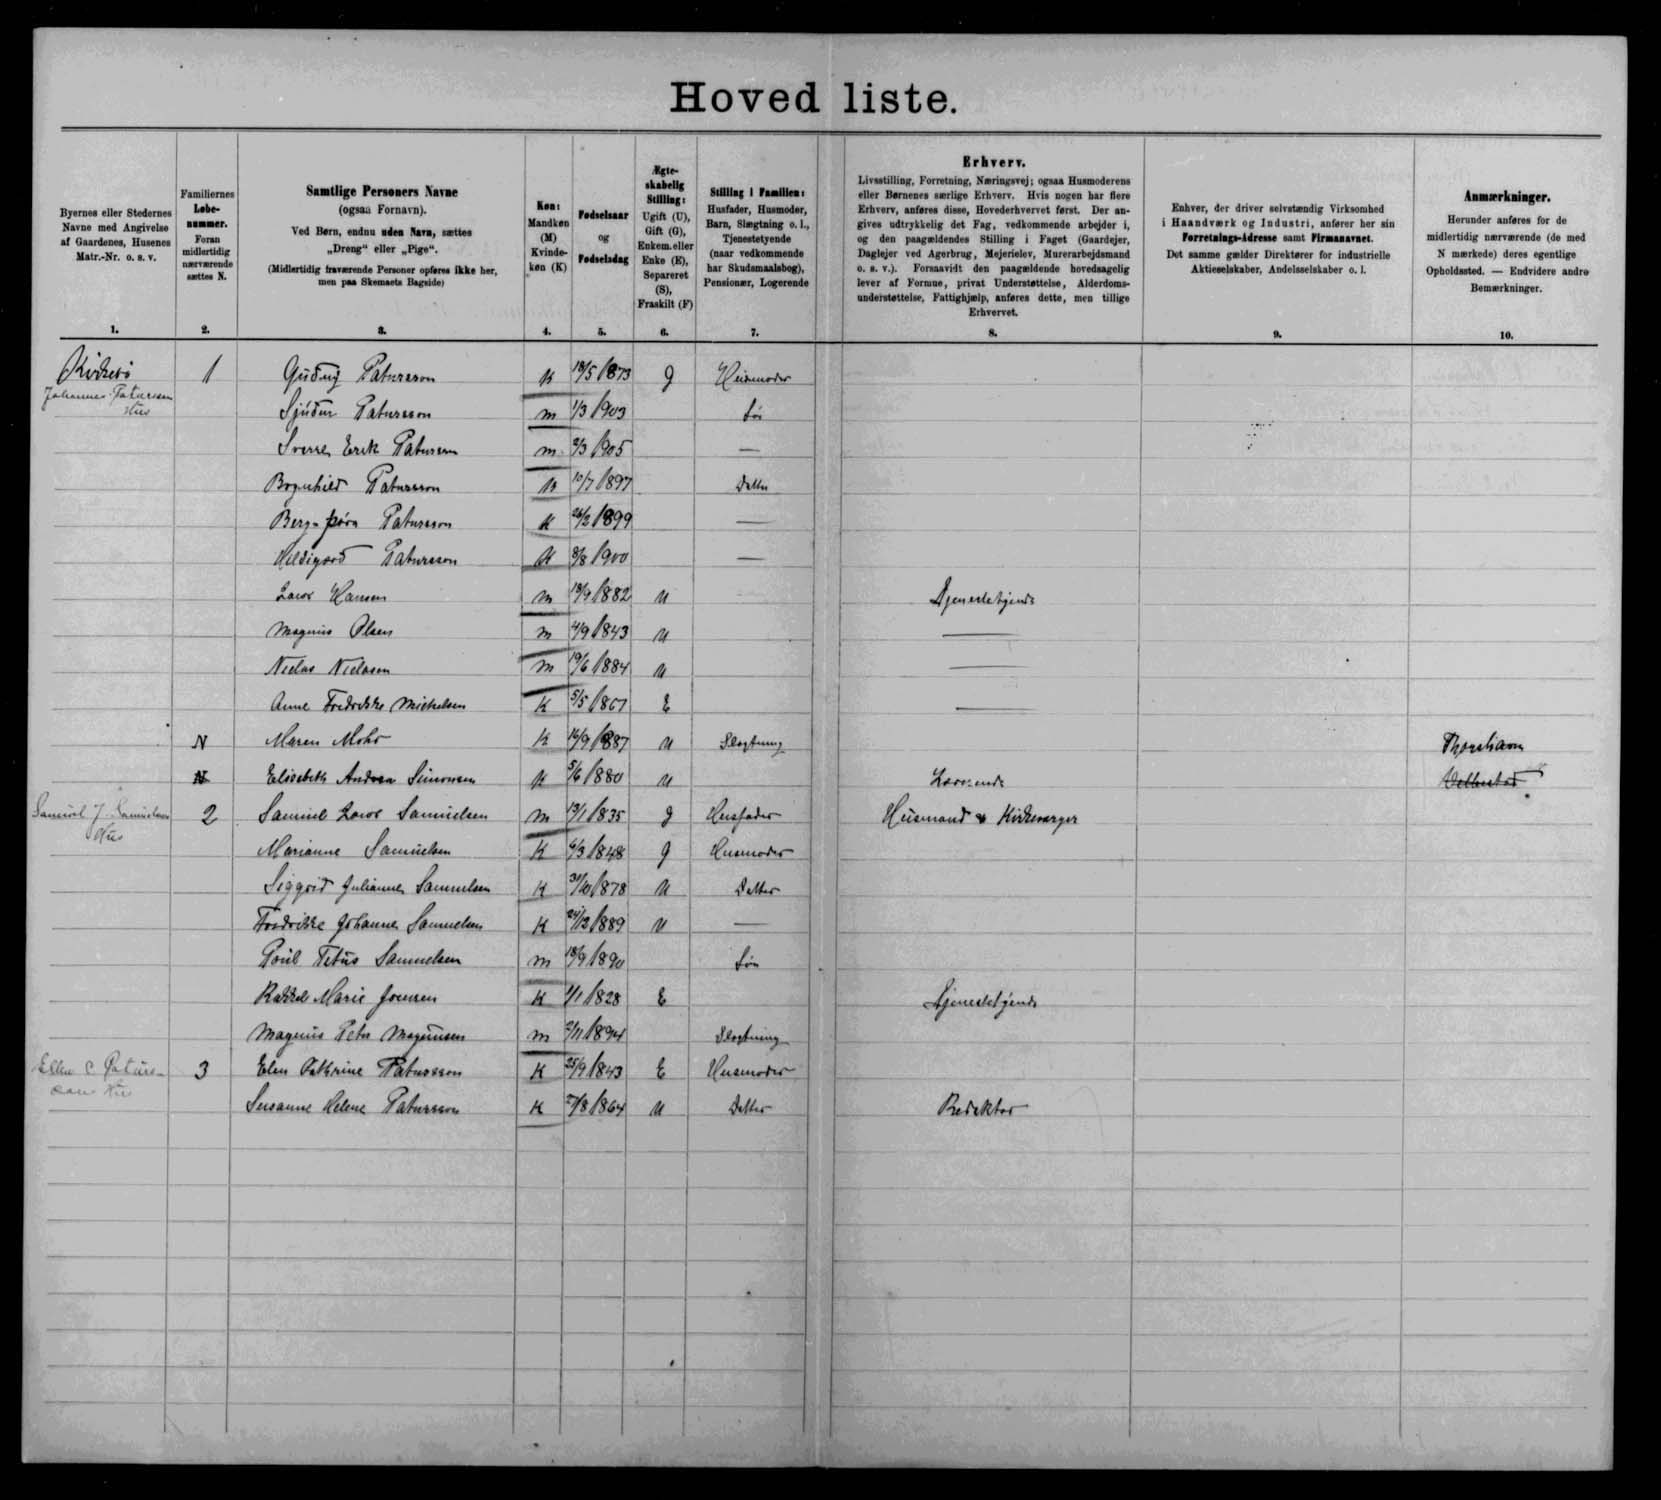 Hoved liste.
Byernes eller Stedernes Navne med Angivelse af Gaardenes, Husenes Matr.-Nr. o. s. v.
1.
Familiernes Løbe-nummer. Foran midlertidig nærværende sættes N.
2.
Samtlige Personers Navne
(ogsaa Fornavn).
Ved Børn, endnu uden Navn, sættes „Dreng“ eller „Pige“.
(Midlertidig fraværende Personer opføres ikke her, men paa Skemaets Bagside)
3.
Køn: Mandkøn (M) Kvinde-køn (K)
4.
Fødselsaar og Fødselsdag
5.
Ægte-skabelig Stilling: Ugift (U), Gift (G), Enkem. eller Enke (E), Separeret (S), Fraskilt (F)
6.
Stilling i Familien: Husfader, Husmoder, Barn, Slægtning o. l., Tjenestetyende (naar vedkommende har Skudsmaalsbog), Pensionær, Logerende
7.
Erhverv.
Livsstilling, Forretning, Næringsvej; ogsaa Husmoderens eller Børnenes særlige Erhverv. Hvis nogen har flere Erhverv, anføres disse, Hovederhvervet først. Der angives udtrykkelig det Fag, vedkommende arbejder i, og den paagældendes Stilling i Faget (Gaardejer, Daglejer ved Agerbrug, Mejerielev, Murerarbejdsmand o. s. v.). Forsaavidt den paagældende hovedsagelig lever af Formue, privat Understøttelse, Alderdoms-understøttelse, Fattighjælp, anføres dette, men tillige Erhvervet.
8.
Enhver, der driver selvstændig Virksomhed i Haandværk og Industri, anfører her sin Forretnings-Adresse samt Firmanavnet. Det samme gælder Direktører for industrielle Aktieselskaber, Andelsselskaber o. l.
9.
Anmærkninger.
Herunder anføres for de midlertidig nærværende (de med N mærkede) deres egentlige Opholdssted. — Endvidere andre Bemærkninger.
10.
Kirkebø 1 Guðny Patursson K 18/5 1873 g Husmoder
Johannes Patursson Hus
Sjúður Patursson m 1/3 1903 Søn
Sverre Erik Patursson m 2/3 1905 —
Bognhild Patursson K 10/7 1897 Datter
Bergþóra Patursson K 26/2 1899 —
Hildigard Patursson K 8/8 1900 —
Hansen m 18/9 1882 U Tjenestetyende
Magnus Olsen m 4/9 1843 U —
Niclas Niclasen m 19/6 1884 U —
Anne Fredrikke Michelsen K 5/5 1867 E —
N Maren Mohr K 16/9 1887 U Slægtning Thorshavn
N Elisabeth Andrea Simonsen K 5/6 1880 U Lærerinde Velbestad
Samuel J. Samuelsens Hus 2 Samuel Samuelsen m 13/1 1835 g Husfader Husmand & Kirkeværger
Marianne Samuelsen K 6/3 1848 g Husmoder
Siggrid Julianne Samuelsen K 31/10 1878 U Datter
Fredrikke Johanne Samuelsen K 24/12 1889 U —
Poul Petus Samuelsen m 18/9 1890 Søn
Rakkel Marie Joensen K 1/1 1828 E Tjenestetyende
Magnus Peter Magnusen m 2/11 1894 Slægtning
Ellen C Paturs- 3 Elen Cathrine Patursson K 25/9 1843 E Husmoder
sons Hus
Susanne Helene Patursson K 27/8 1864 U Datter Redaktør